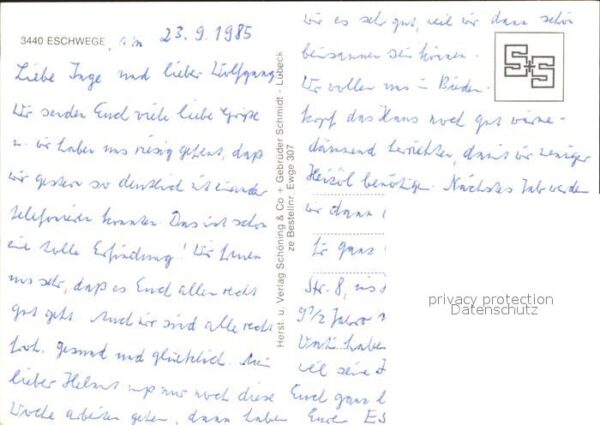 3440 ESCHWEGE, den 23.9.1985
Liebe Inge und lieber Wolfgang
Wir senden Euch viele liebe Grüße
u. wir haben uns riesig gefreut, daß
wir gestern so deutlich miteinander
telefonieren konnten. Das ist schon
eine tolle Erfindung! Wir freuen
uns sehr, daß es Euch allen recht
gut geht. Auch wir sind alle recht
froh, gesund und glücklich. Mein
lieber Helmut muß nur noch diese
Woche arbeiten gehen, dann haben
Herst. u. Verlag Schöning & Co + Gebrüder Schmidt - Lübeck
ze Bestellnr. Ewge 307
wir es sehr gut, weil wir dann schön
beisammen sein können.
Wir wollen uns in Bieden-
kopf das Haus noch gut wärme-
dämmend herrichten, damit wir weniger
Heizöl benötigen. Nächstes Jahr werden
wir dann
ganz
Str. 8, ins
9 1/2 Jahre
haben
weil seine
Euch ganz
Eure
S+S
privacy protection
Datenschutz